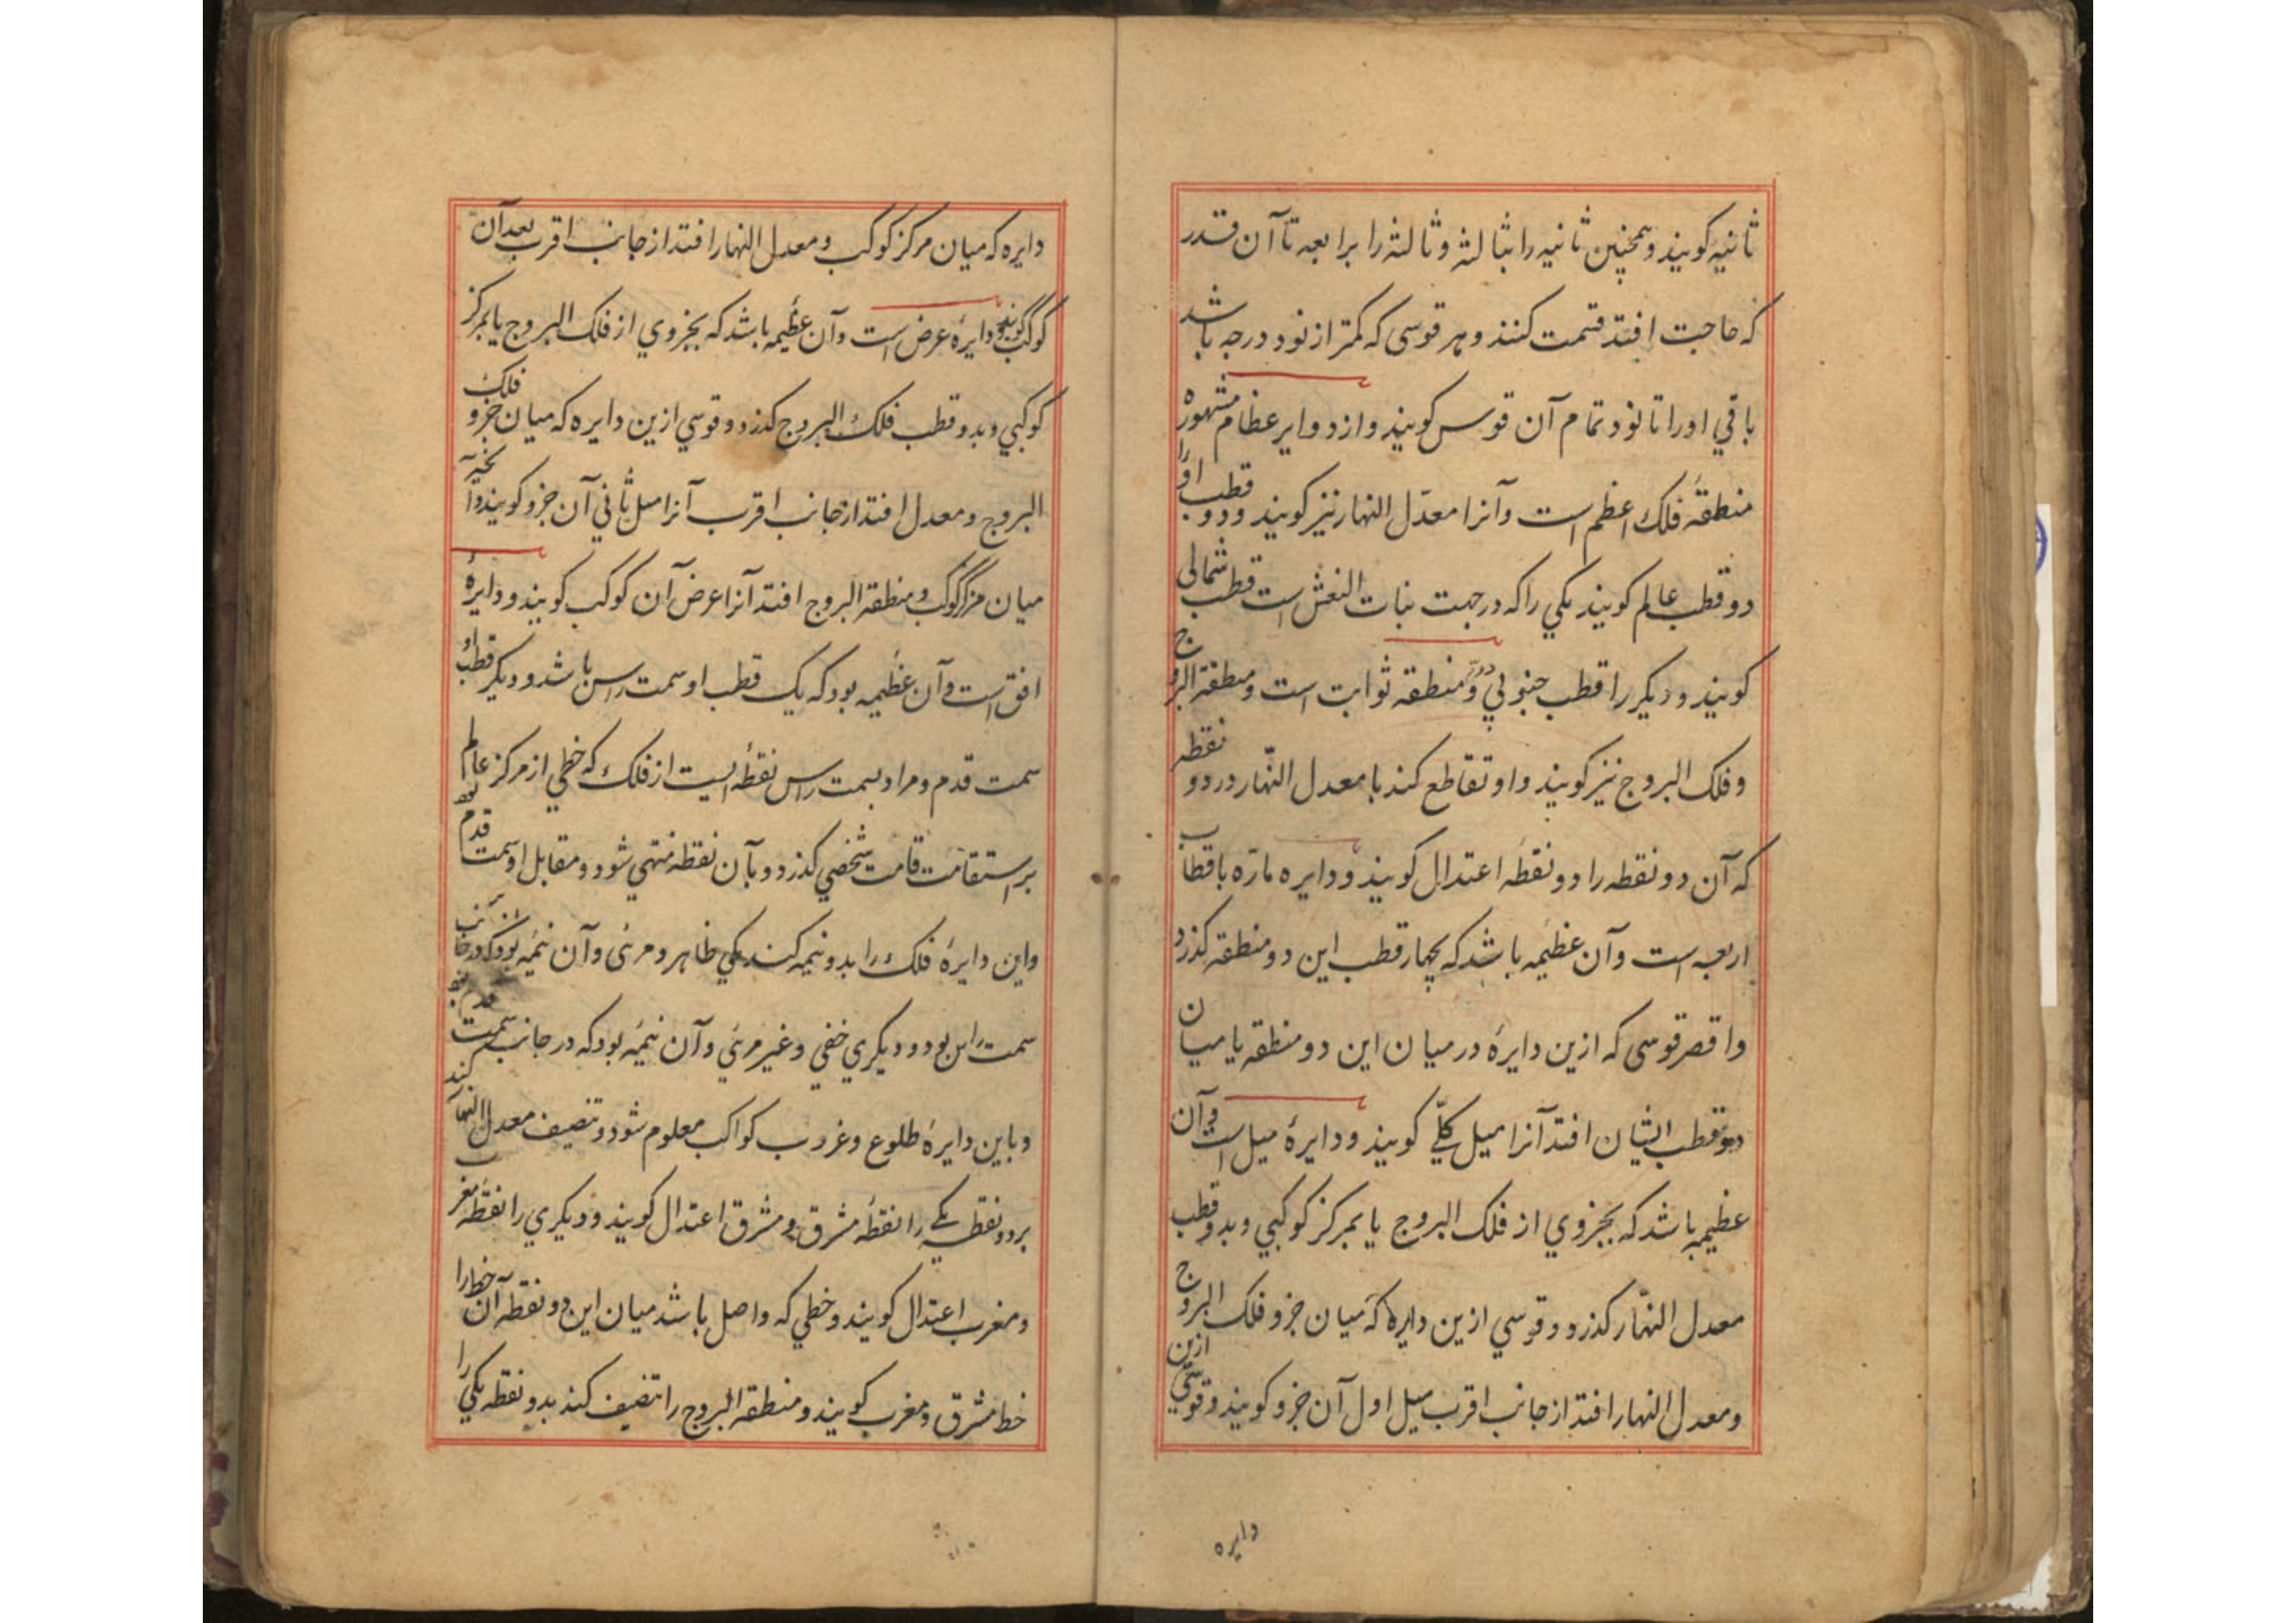 ثانیه کویند و همچنین ثانیه را بثالثه و ثالثه را برابعه تا آن قدر
که حاجت افتد قسمت کنند و هر قوسی که کمتر از نود درجه باشد
باقي اورا تا نود تمام آن قوس کویند و از دوایر عظام مشهوره
منطقهٔ فلک اعظم است و آنرا معدّل النهار نیز کویند و دو قطب اورا
دو قطب عالم کویند یکي را که در جهت بنات النعش است قطب شمالی
کویند و دیکر را قطب جنوبي و دوّم منطقه ثوابت است و منطقة البروج
و فلک البروج نیز کویند و او تقاطع کند با معدل النّهار در دو نقطه
که آن دو نقطه را دو نقطه اعتدال کویند و دایره مارّه باقطاب
اربعه است و آن عظیمه باشد که بچهار قطب این دو منطقه کذرد
و اقصر قوسی که ازین دایرهٔ در میان این دو منطقه یا میان
دو قطب ایشان افتد آنرا میل کلّي کویند و دایرهٔ میل است و آن
عظیمه باشد که بجزوي از فلک البروج یا بمرکز کوکبي و بدو قطب
معدل النهّار کذرد و قوسي ازین دایره که میان جزو فلک البروج
و معدل النهار افتد از جانب اقرب میل اول آن جزو کویند و قوسي ازین
دایره
دایره که میان مرکز کوکب و معدل النهار افتد از جانب اقرب بعد آن
کوکب کویند و دایرهٔ عرض است و آن عظیمه باشد که بجزوي از فلک البروج یا بمرکز
کوکبي و بدو قطب فلک البروج کذرد و قوسي ازین دایره که میان جزو فلک
البروج و معدل افتد از جانب اقرب آنرا میل ثاني آن جزو کویند و آنچه
میان مرکز کوکب و منطقة البروج افتد آنرا عرض آن کوکب کویند و دایرهٔ
افق است و آن عظیمه بود که یک قطب او سمت راس باشد و دیکر قطب او
سمت قدم و مراد بسمت راس نقطه ایست از فلک که خطي از مرکز عالم
بر استقامت قامت شخصي کذرد و بآن نقطه منتهي شود و مقابل او سمت قدم بود
و این دایرهٔ فلک را بدو نیمه کند یکي ظاهر و مرئی و آن نیمه بود که در جانب
سمت راس بود و دیکري خفي و غیر مرئي و آن نیمه بود که در جانب سمت قدم بود
و باین دایرهٔ طلوع و غروب کواکب معلوم شود و تنصیف معدل النهار کند
بر دو نقطه یکے را نقطهٔ مشرق و مشرق اعتدال کویند و دیکري را نقطه مغرب
و مغرب اعتدال کویند و خطي که واصل باشد میان این دو نقطه آن خط را
خط مشرق و مغرب کویند و منطقة البروج را تنصیف کند بدو نقطه یکي را